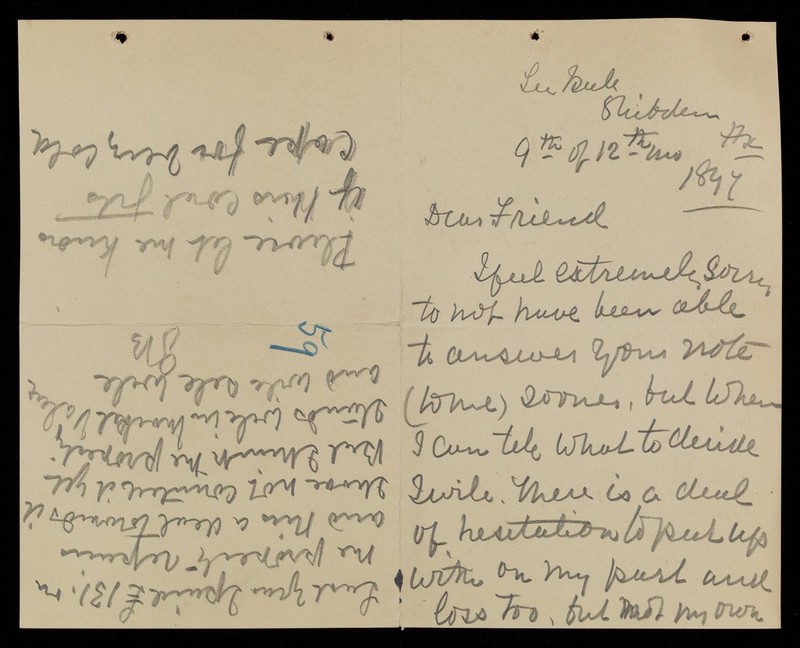 Shibden
Hx
9th of 12th mo
1897
Dear Friend
I feel extremely Sorry
to not have been able
to answer your note
(to me) sooner, but when
I can tell what to decide
I will. There is a deal
of hesitation to put up
with on my part and
loss too, but not my own
Last year I paid £131. on
the property repairs
and this is a deal towards it
I have not counted it yet
But I think the property
stands well in market value
and will sell well
JB
59
Please let me know
if this
for very cold